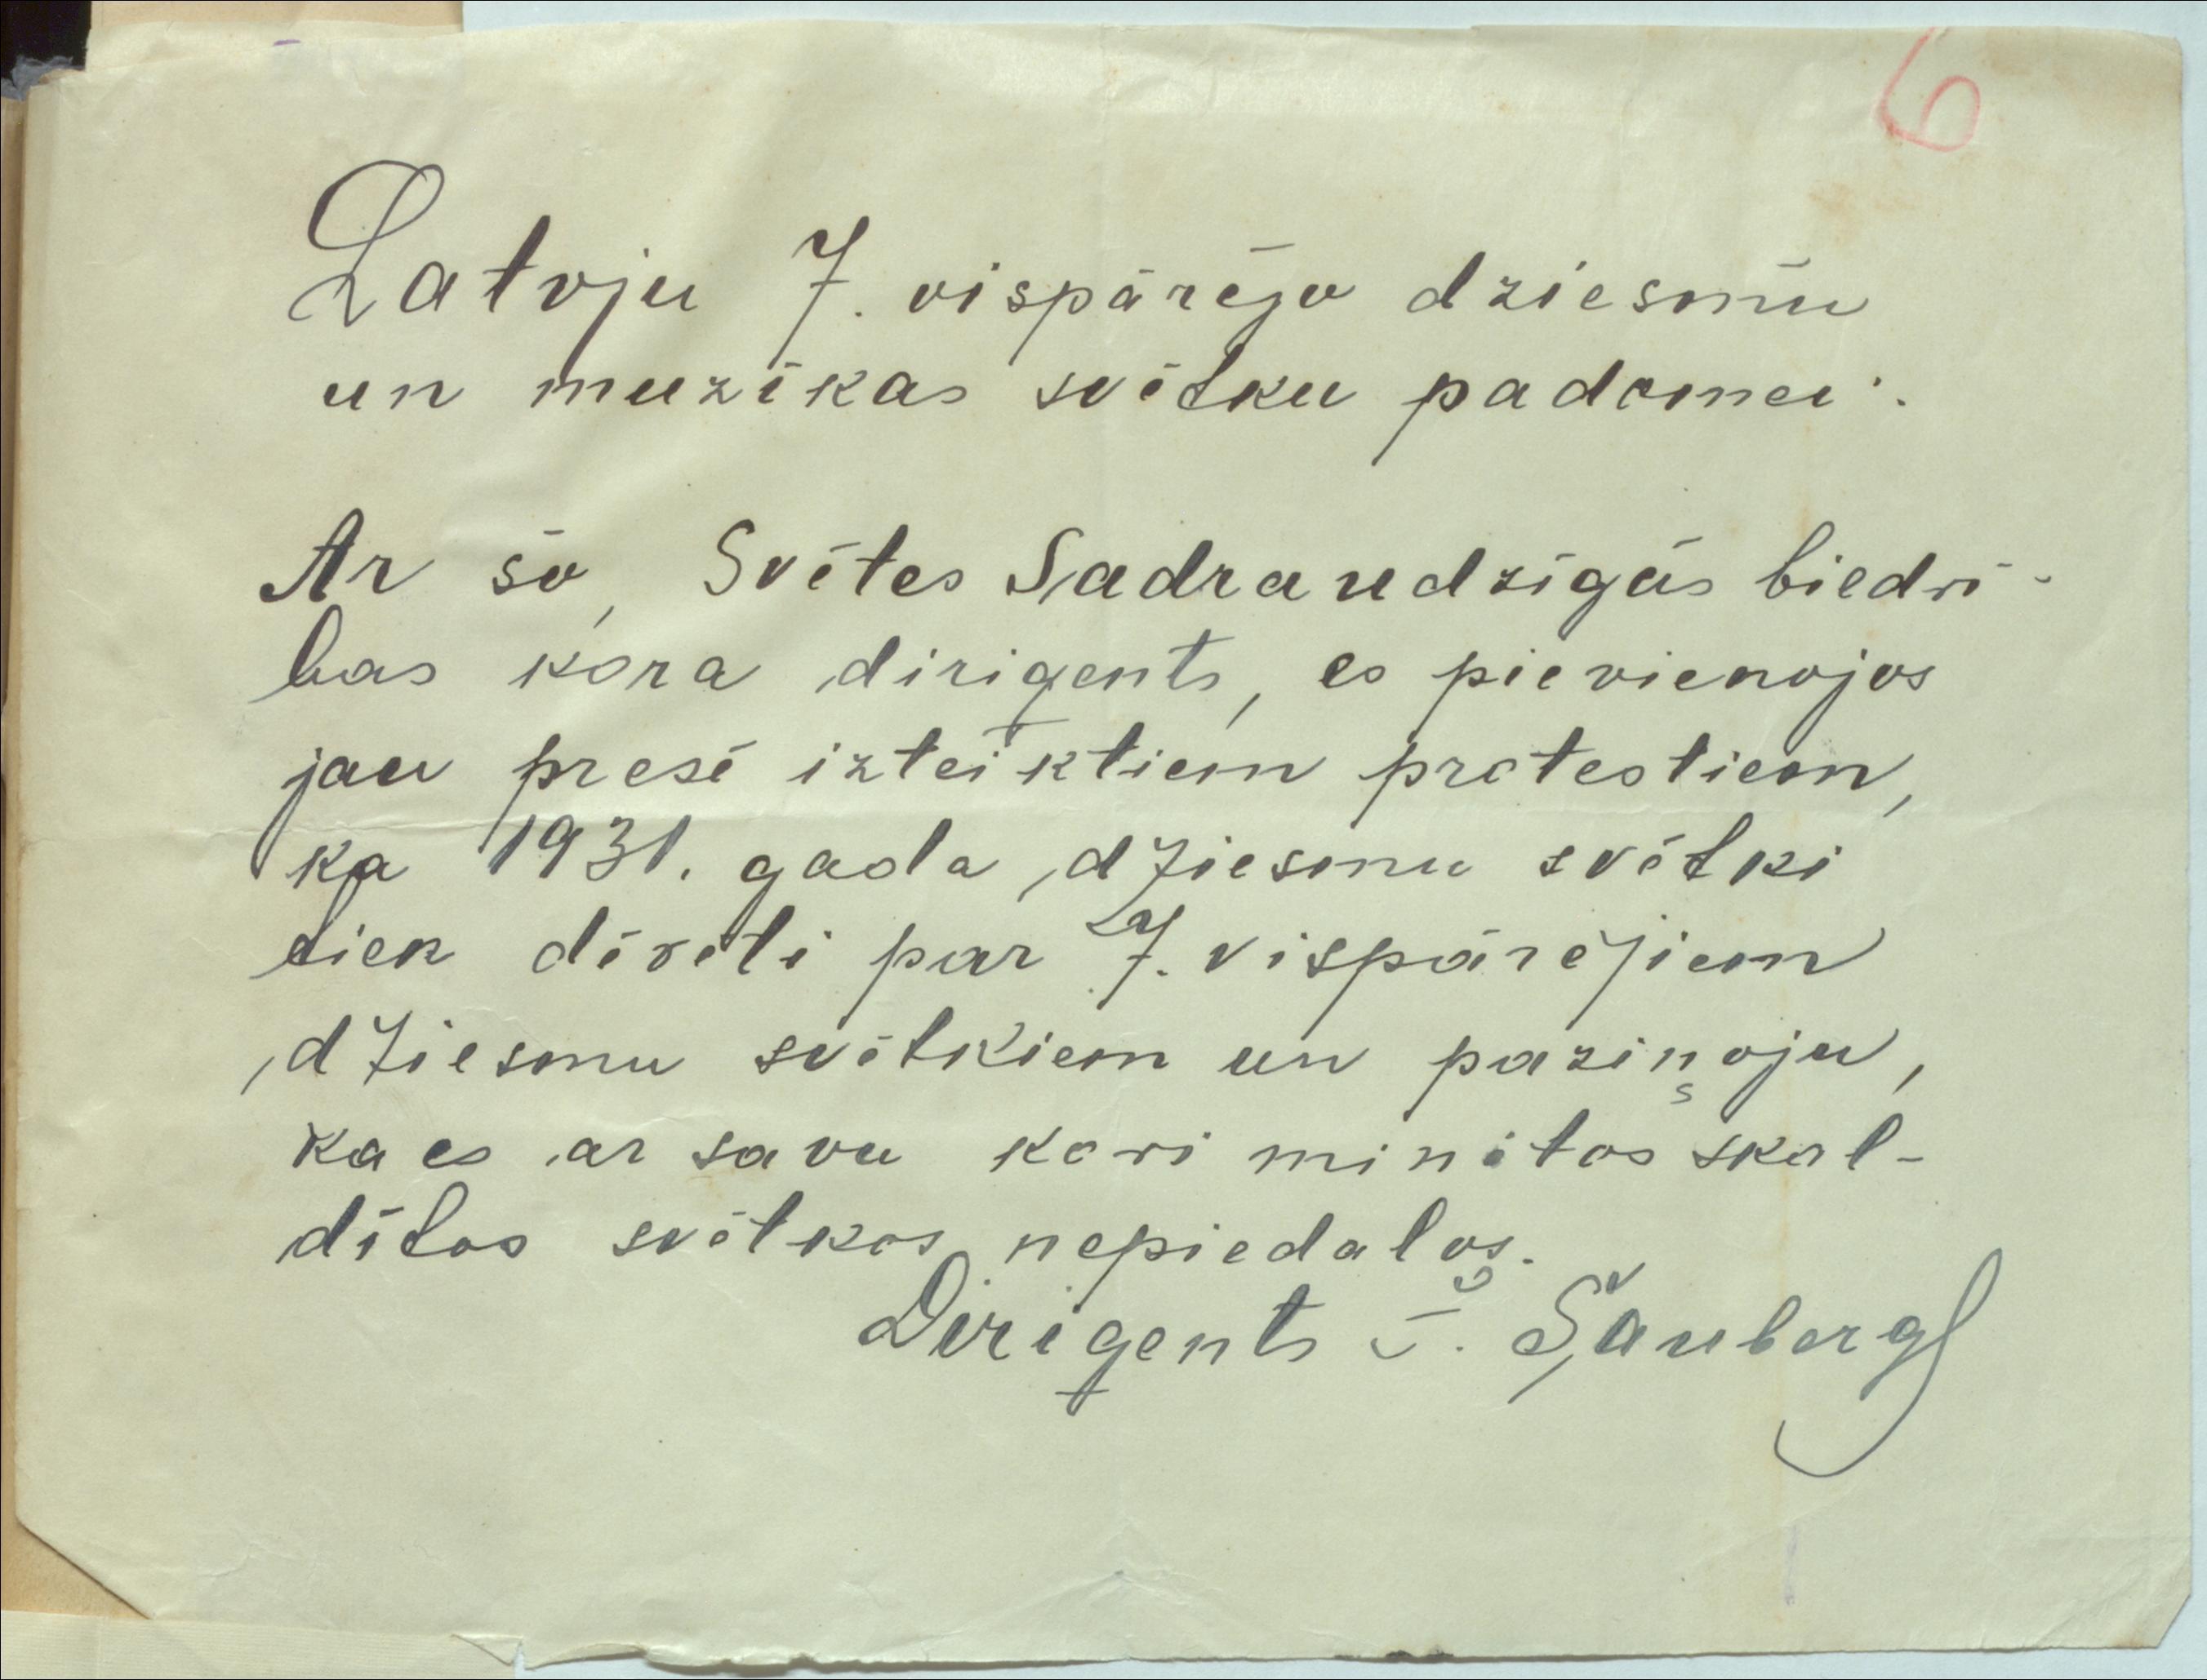 6
Latvju 7. vispārējo dziesmu
un muzīkas svētku padomei.
Ar šo, Svētes Sadraudzīgās biedrī-
bas kora dirigents, es pievienojos
jau presē izteiktiem protestiem,
ka 1931. gada dziesmu svētki
tiek dēvēti par 7. vispārējiem
dziesmu svētkiem un paziņoju,
ka es ar savu kori minētos skal-
dītos svētkos nepiedalos.
Dirigents